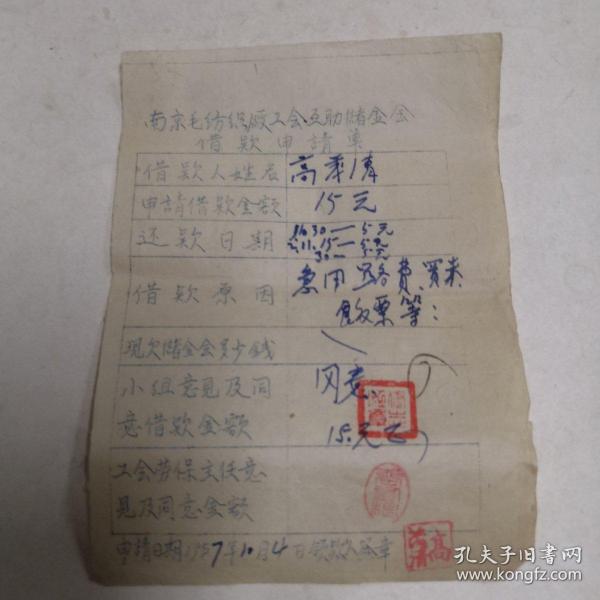 南京毛纺织厰工会互助储金会
借款申請单
借款人姓名 高
申請借款金额 15元
还款日期 10.30—5元
11.15—5元
30—5元
借款原因 急用路费、买来
飯票等:
现欠储金会多少钱
小组意见及同意借款金额 同意
15.元正
工会劳保主任意见及同意金额
申請日期1957年10月4日领款人盖章
高
孔夫子旧书网
www.kongfz.com